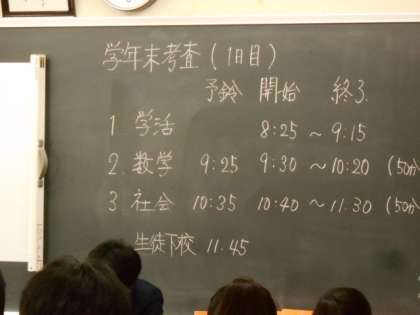 学年末考査(1日目)
予鈴 開始 終了.
1 学活 8:25 ~ 9:15
2. 数学 9:25 9:30 ~ 10:20 (50分
3. 社会 10:35 10:40 ~ 11.30 (50分
生徒下校 11.45